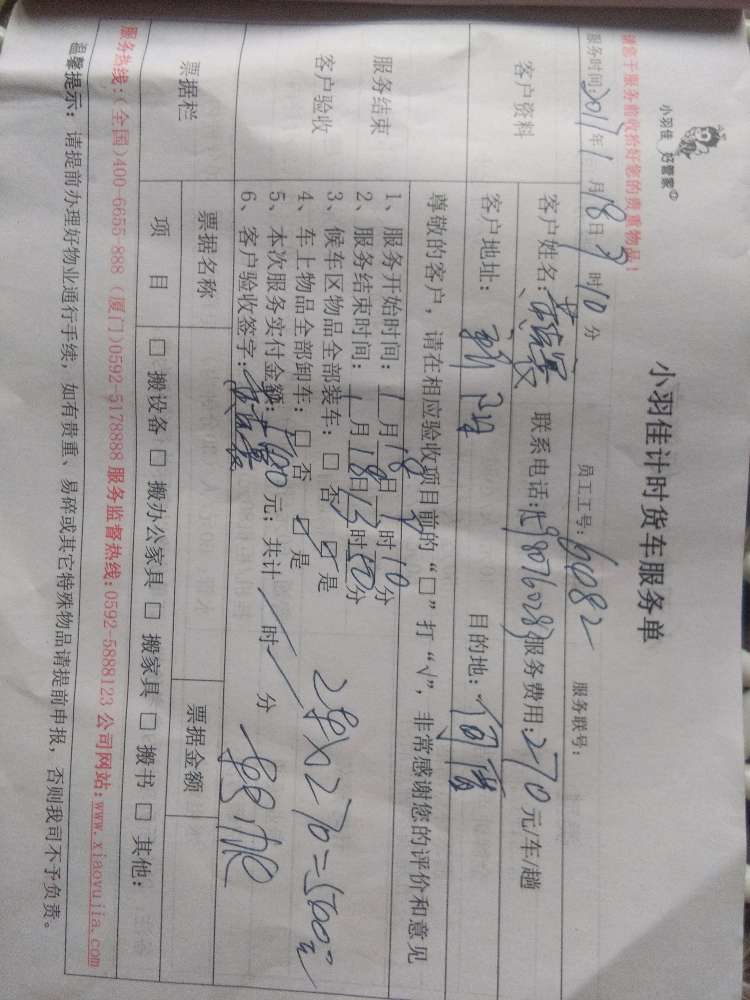 小羽佳 好管家
小羽佳计时货车服务单
请您于服务前收拾好您的贵重物品！
服务时间:2017年1月18日 时10分 员工工号:6082 服务联号:
客户资料
客户姓名: 联系电话: 服务费用:270元/车/趟
客户地址: 目的地:
尊敬的客户，请在相应验收项目前的“□”打“√”，非常感谢您的评价和意见
服务结束
客户验收
1、服务开始时间:1月18日 时10分
2、服务结束时间:1月18日 时 分
3、候车区物品全部装车:□否 ☑是
4、车上物品全部卸车:□否 ☑是
5、本次服务实付金额: 元; 共计 时 分
6、客户验收签字:
2车×270=540元
票据栏
票据名称 票据金额
项目 □搬设备 □搬办公家具 □搬家具 □搬书 □其他:
服务热线:(全国)400-6655-888 (厦门)0592-5178888 服务监督热线:0592-5888123 公司网站:www.xiaoyujia.com
温馨提示: 请提前办理好物业通行手续，如有贵重、易碎或其它特殊物品请提前申报，否则我司不予负责。